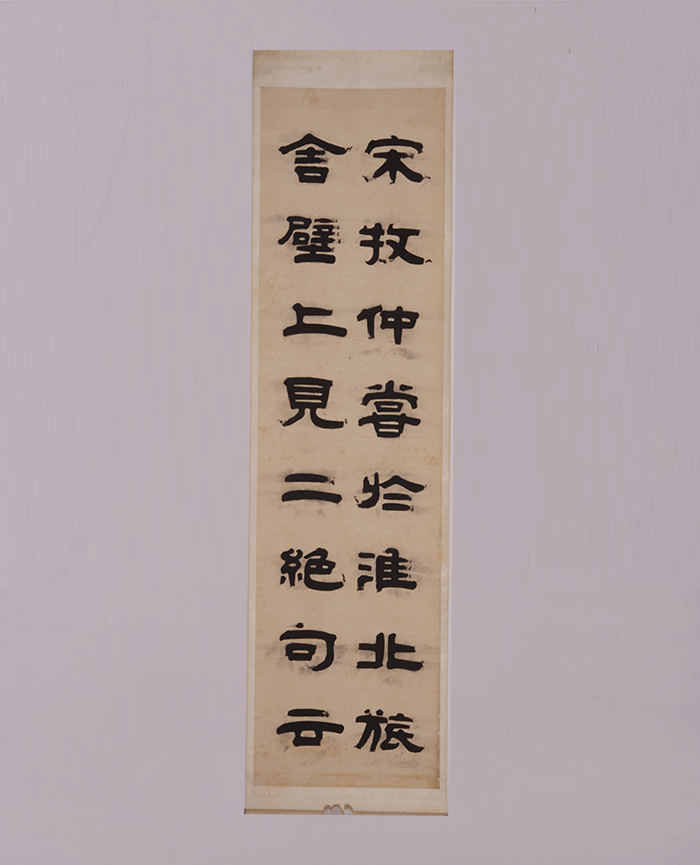 宋牧仲嘗於淮北旅
舍壁上見二絕句云